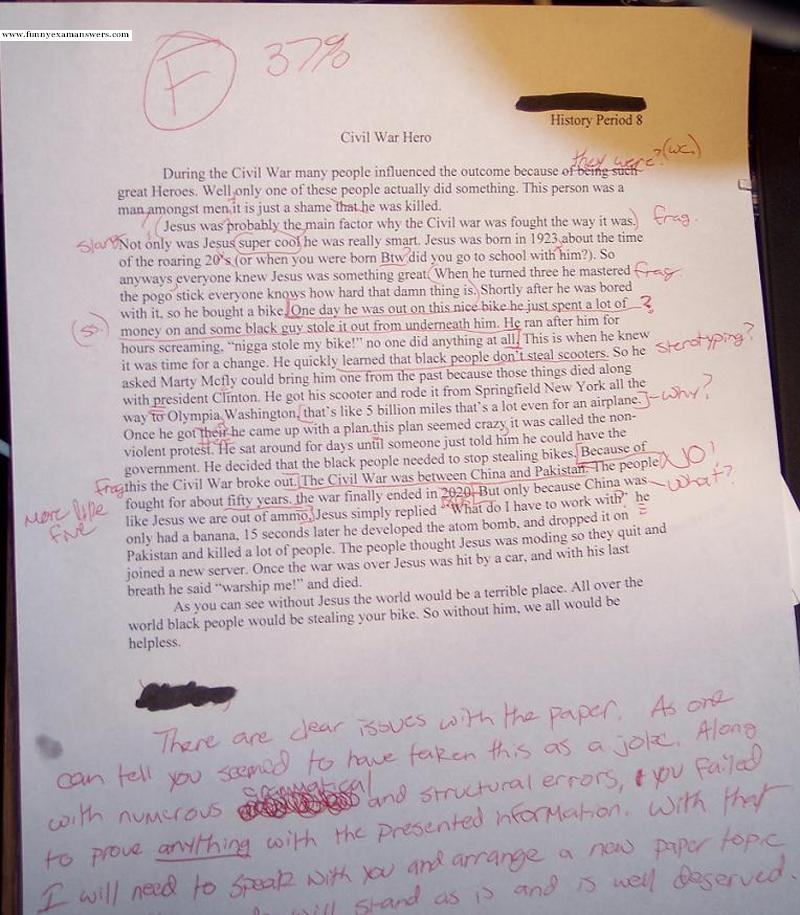 www.funnyexamanswers.com
F 37%
History Period 8
Civil War Hero
they were? (wc.)
During the Civil War many people influenced the outcome because of being such
great Heroes. Well only one of these people actually did something. This person was a
man amongst men it is just a shame that he was killed.
Jesus was probably the main factor why the Civil war was fought the way it was. frag.
slang Not only was Jesus super cool he was really smart. Jesus was born in 1923 about the time
of the roaring 20's (or when you were born Btw did you go to school with him?). So
anyways everyone knew Jesus was something great. When he turned three he mastered frag
the pogo stick everyone knows how hard that damn thing is. Shortly after he was bored
with it, so he bought a bike. One day he was out on this nice bike he just spent a lot of ?
money on and some black guy stole it out from underneath him. He ran after him for
hours screaming, "nigga stole my bike!" no one did anything at all. This is when he knew
it was time for a change. He quickly learned that black people don't steal scooters. So he sterotyping?
asked Marty Mcfly could bring him one from the past because those things died along
with president Clinton. He got his scooter and rode it from Springfield New York all the
way to Olympia Washington, that's like 5 billion miles that's a lot even for an airplane. why?
Once he got their he came up with a plan, this plan seemed crazy it was called the non-
violent protest. He sat around for days until someone just told him he could have the
government. He decided that the black people needed to stop stealing bikes. Because of
Frag this the Civil War broke out. The Civil War was between China and Pakistan. The people NO!
fought for about fifty years. the war finally ended in 2020. But only because China was what?
More like five
like Jesus we are out of ammo, Jesus simply replied "What do I have to work with" he
only had a banana, 15 seconds later he developed the atom bomb, and dropped it on
Pakistan and killed a lot of people. The people thought Jesus was moding so they quit and
joined a new server. Once the war was over Jesus was hit by a car, and with his last
breath he said "warship me!" and died.
As you can see without Jesus the world would be a terrible place. All over the
world black people would be stealing your bike. So without him, we all would be
helpless.
There are clear issues with the paper. As one
can tell you seemed to have taken this as a joke. Along
with numerous grammatical and structural errors, + you failed
to prove anything with the presented information. With that
I will need to speak with you and arrange a new paper topic
will stand as is and is well deserved.